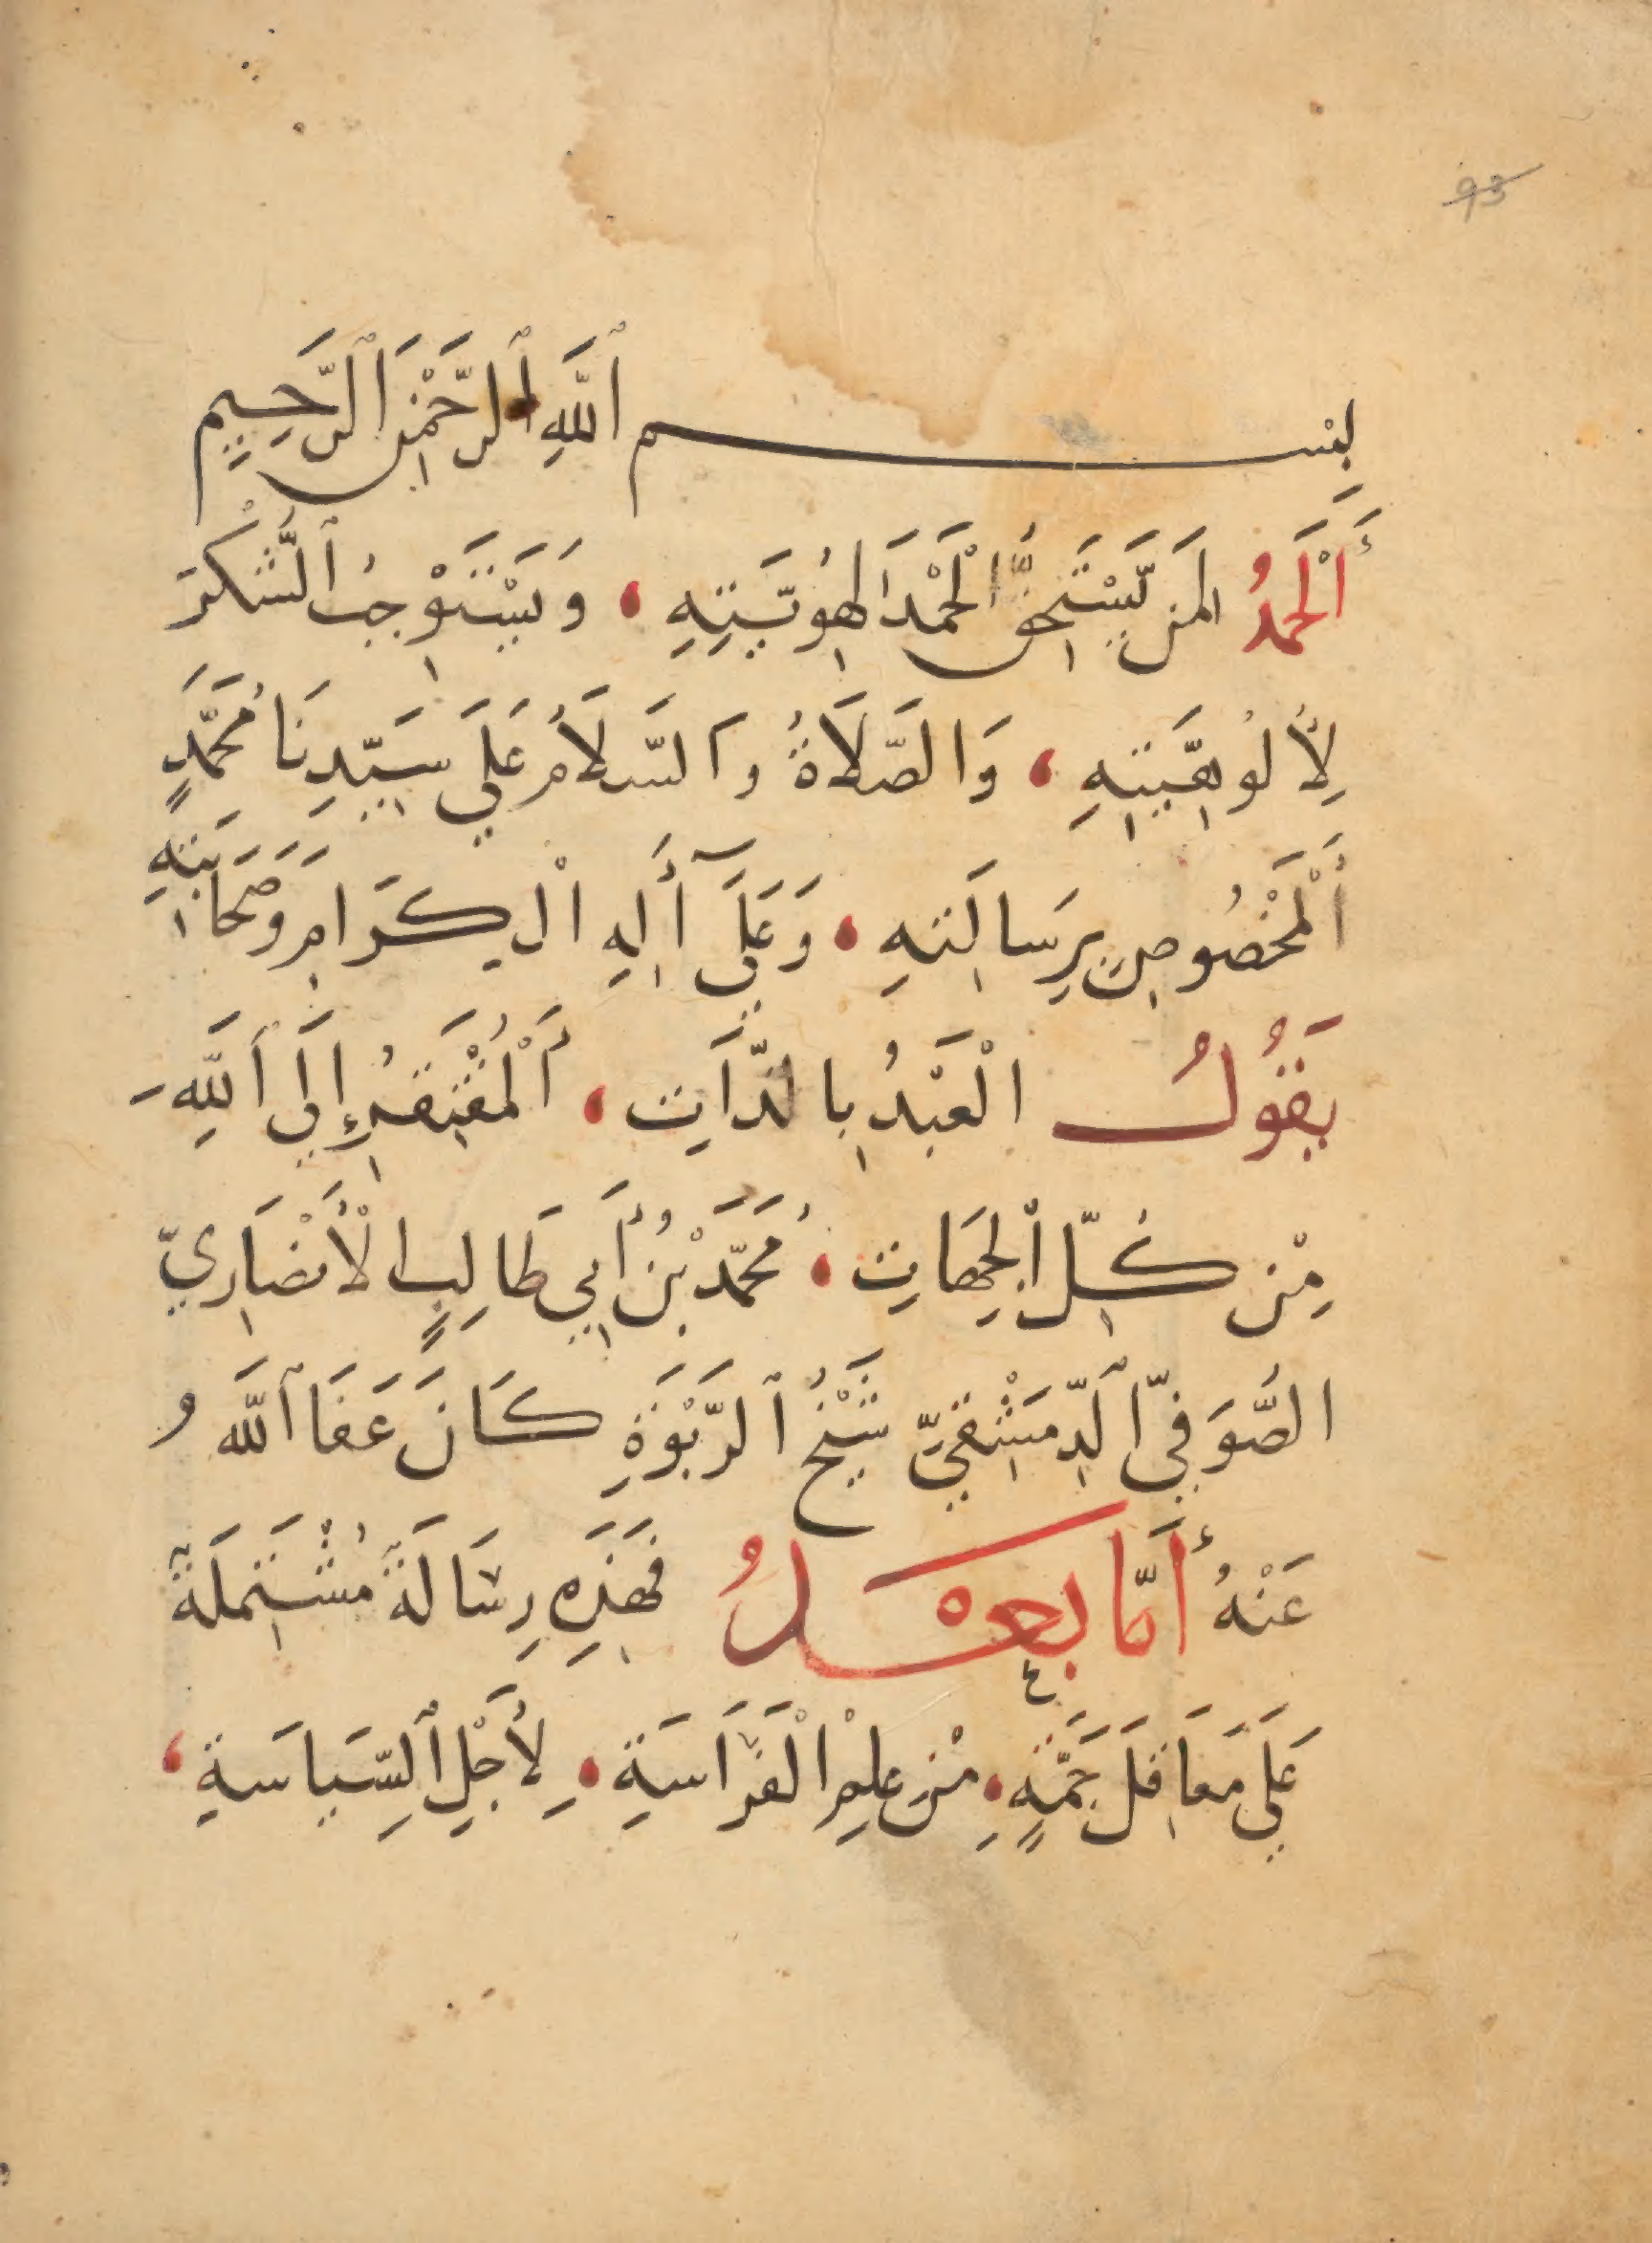 93
بِسْمِ ٱللَّهِ ٱلرَّحْمٰنِ ٱلرَّحِيمِ
أَلْحَمْدُ لِمَنْ يَّسْتَحِقُّ الْحَمْدَ لِهُوِيَّتِهِ ، وَيَسْتَوْجِبُ ٱلشُّكْرَ
لِأُلُوهِيَّتِهِ ، وَالصَّلَاةُ وَالسَّلَامُ عَلَى سَيِّدِنَا مُحَمَّدٍ
أَلْمَخْصُوصِ بِرِسَالَتِهِ ، وَعَلَى آلِهِ الْكِرَامِ وَصَحَابَتِهِ
يَقُولُ الْعَبْدُ بِالذَّاتِ ، أَلْمُفْتَقِرُ إِلَى ٱللَّهِ
مِنْ كُلِّ ٱلْجِهَاتِ ، مُحَمَّدُ بْنُ أَبِي طَالِبٍ الْأَنْصَارِيّ
الصُّوفِيّ ٱلدِّمَشْقِيّ شَيْخُ ٱلرَّبْوَةِ كَانَ عَفَا ٱللَّهُ
عَنْهُ أَمَّا بَعْدُ فَهَذِهِ رِسَالَةٌ مُشْتَمِلَةٌ
عَلَى مَعَاقِلَ جَمَّةٍ ، مِنْ عِلْمِ الْفَرَاسَةِ ، لِأَجْلِ ٱلسِّيَاسَةِ ،